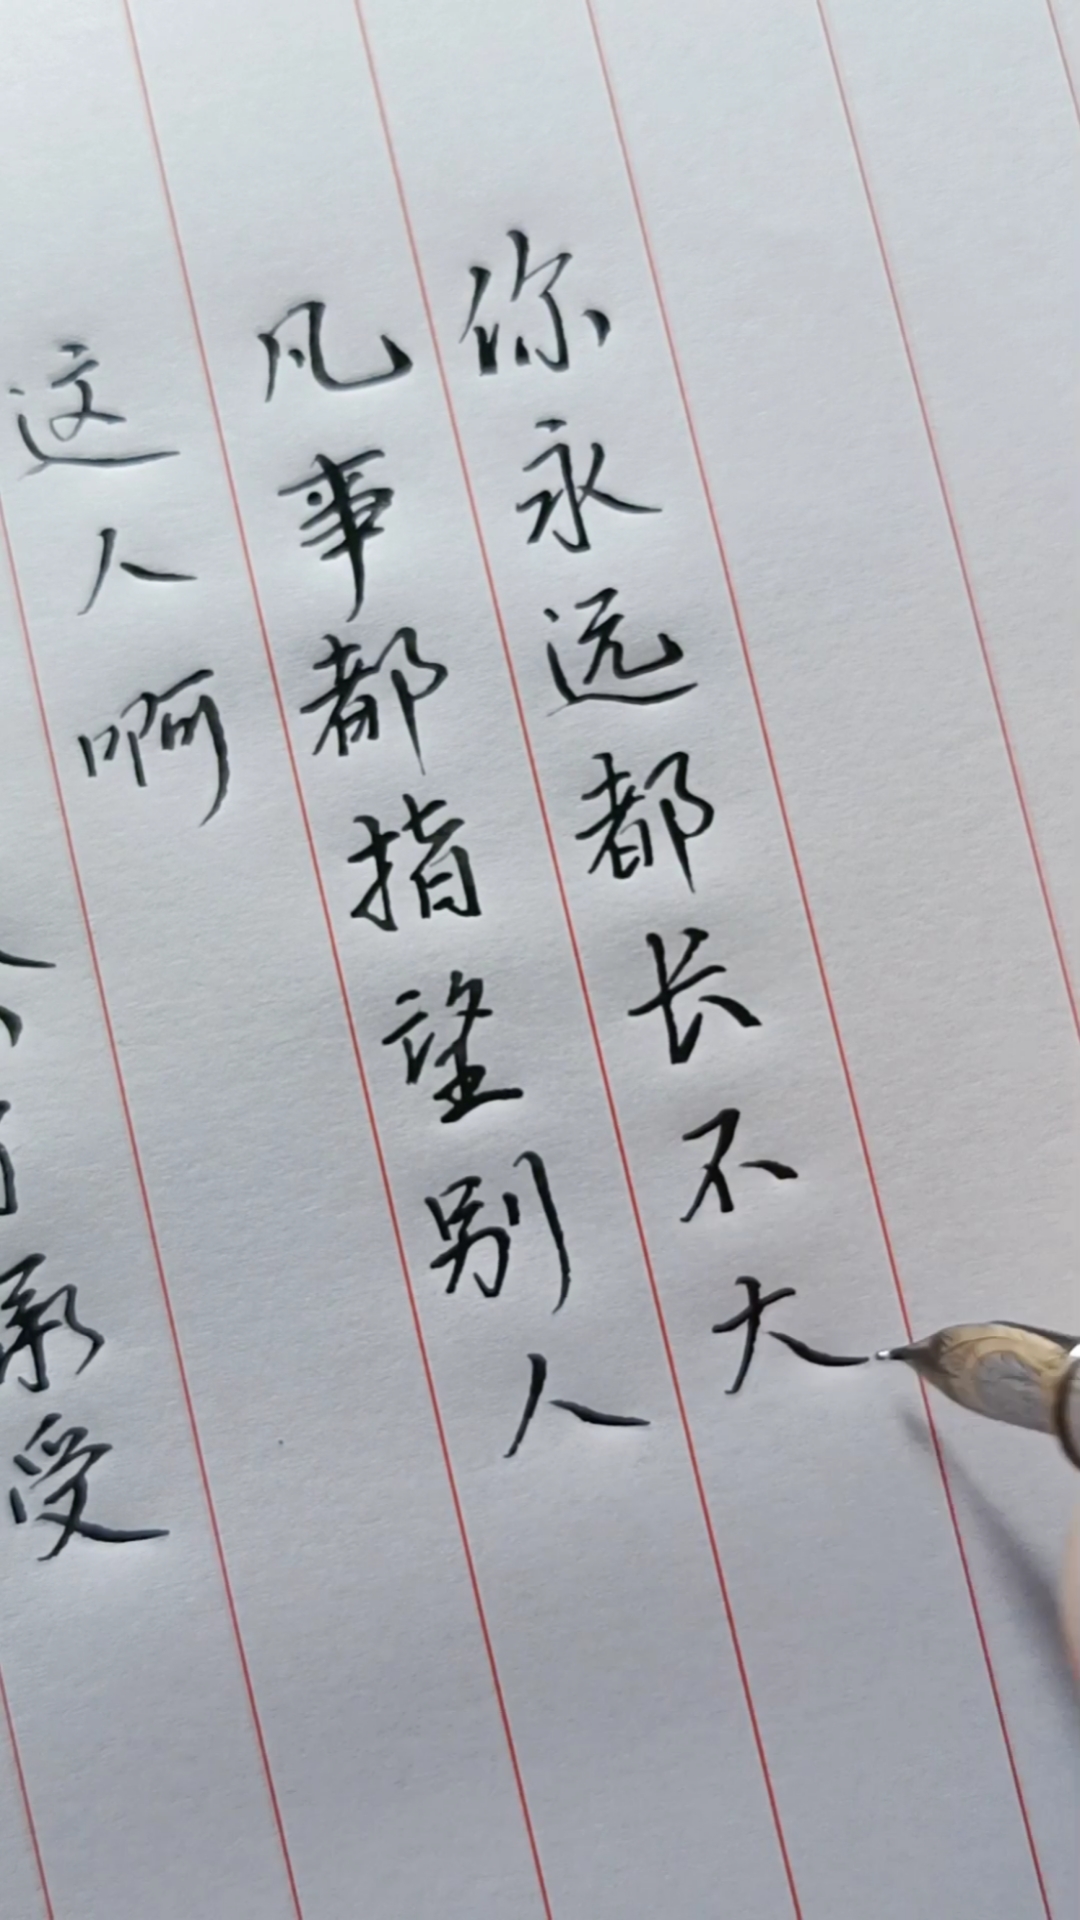 承受
这人啊
凡事都指望别人
你永远都长不大